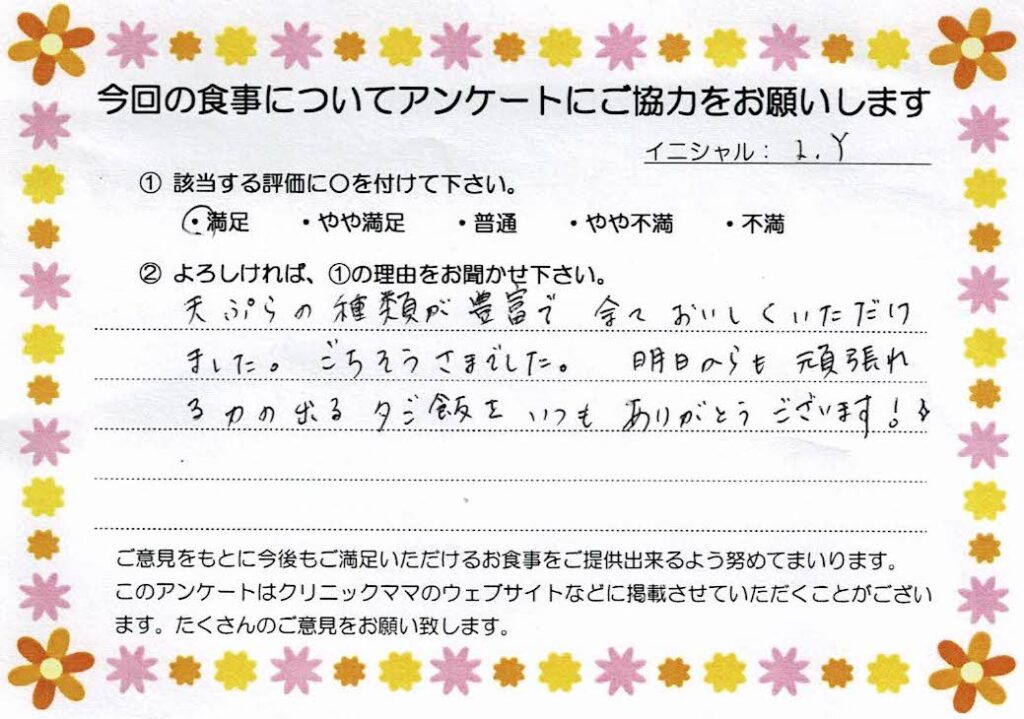 今回の食事についてアンケートにご協力をお願いします
イニシャル： Y
① 該当する評価に〇を付けて下さい。
・満足 ・やや満足 ・普通 ・やや不満 ・不満
② よろしければ、①の理由をお聞かせ下さい。
天ぷらの種類が豊富で 全ておいしくいただけ
ました。ごちそうさまでした。 明日からも頑張れ
る力の出る夕ご飯をいつもありがとうございます！
ご意見をもとに今後もご満足いただけるお食事をご提供出来るよう努めてまいります。
このアンケートはクリニックママのウェブサイトなどに掲載させていただくことがござい
ます。たくさんのご意見をお願い致します。